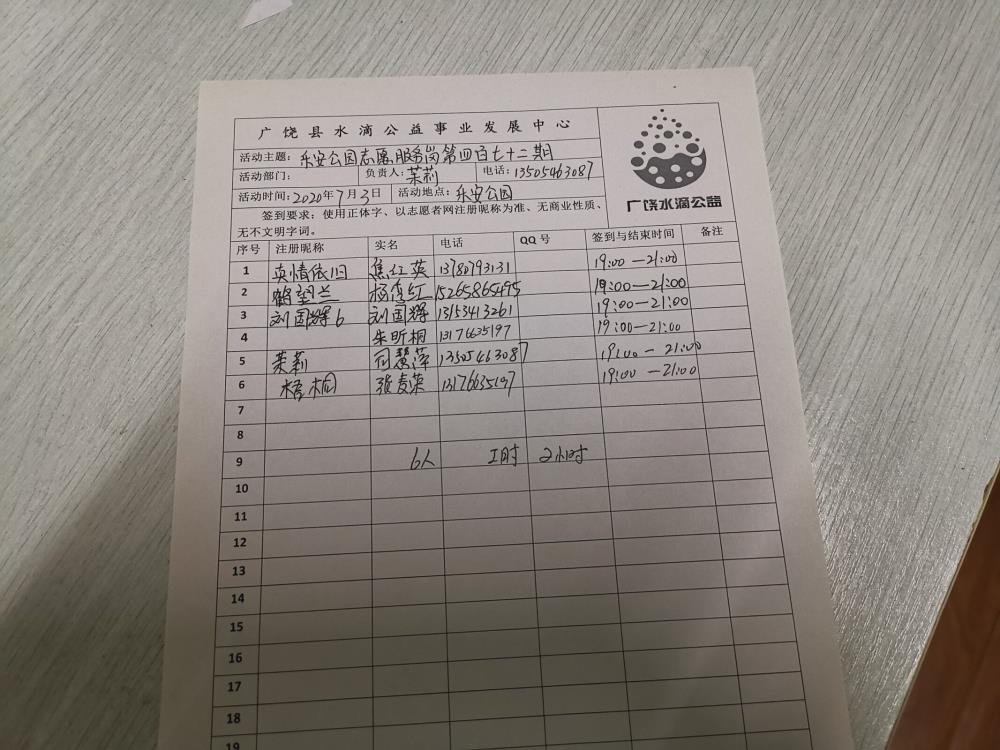 广饶县水滴公益事业发展中心
活动主题：乐安公园志愿服务岗第四百七十二期
活动部门： 负责人：茉莉 电话：13505463087
活动时间：2020年7月3日 活动地点：乐安公园
签到要求：使用正体字、以志愿者网注册昵称为准、无商业性质、
无不文明字词。
广饶水滴公益
序号 注册昵称 实名 电话 QQ号 签到与结束时间 备注
1 真情依旧 焦红英 13780793131 19:00—21:00
2 鹤望兰 杨秀红 15265865495 19:00—21:00
3 刘国辉6 刘国辉 13153413261 19:00—21:00
4 朱昕桐 13176635197 19:00—21:00
5 茉莉 司慧萍 13505463087 19:00—21:00
6 梧桐 张麦英 13176635197 19:00—21:00
7
8
9 6人 工时 2小时
10
11
12
13
14
15
16
17
18
19